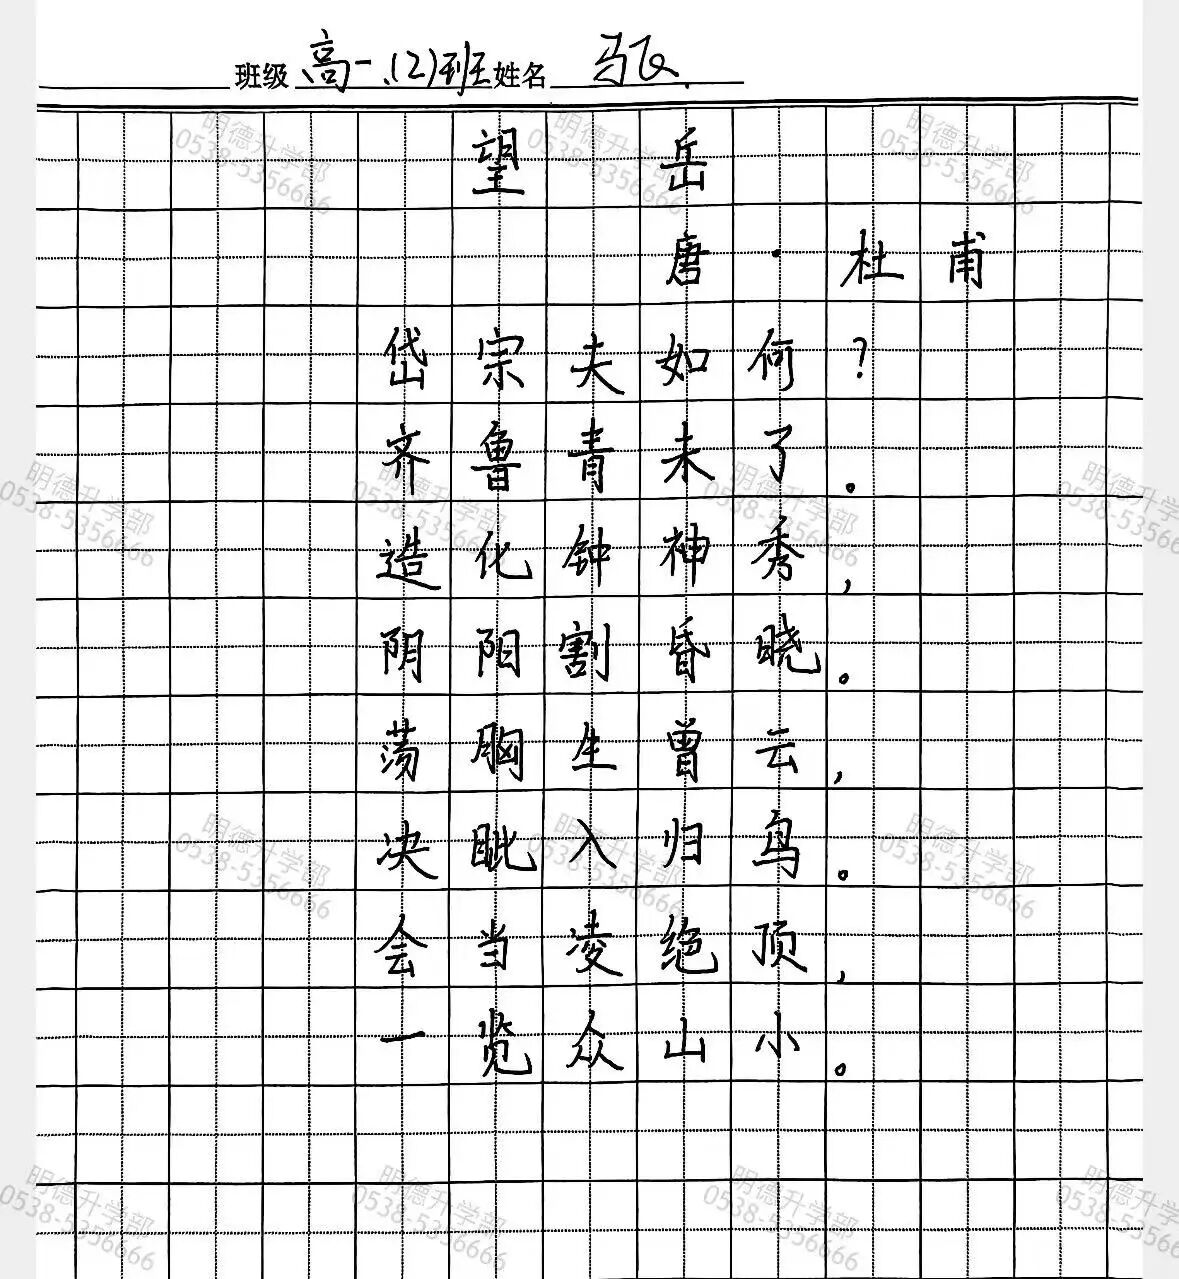 班级 高一(2)班 姓名 马飞
望岳
唐·杜甫
岱宗夫如何?
齐鲁青未了。
造化钟神秀,
阴阳割昏晓。
荡胸生曾云,
决眦入归鸟。
会当凌绝顶,
一览众山小。
明德升学部
0538-5356666
明德升学部
0538-5356666
明德升学部
0538-5356666
明德升学部
0538-5356666
明德升学部
0538-5356666
明德升学部
0538-5356666
明德升学部
0538-535666
明德升学部
0538-5356666
明德升学部
0538-5356666
明德升学部
0538-5356666
明德升学部
0538-5356666
明德升学部
0538-5356666
明德升学部
0538-5356666
明德升学
0538-535666